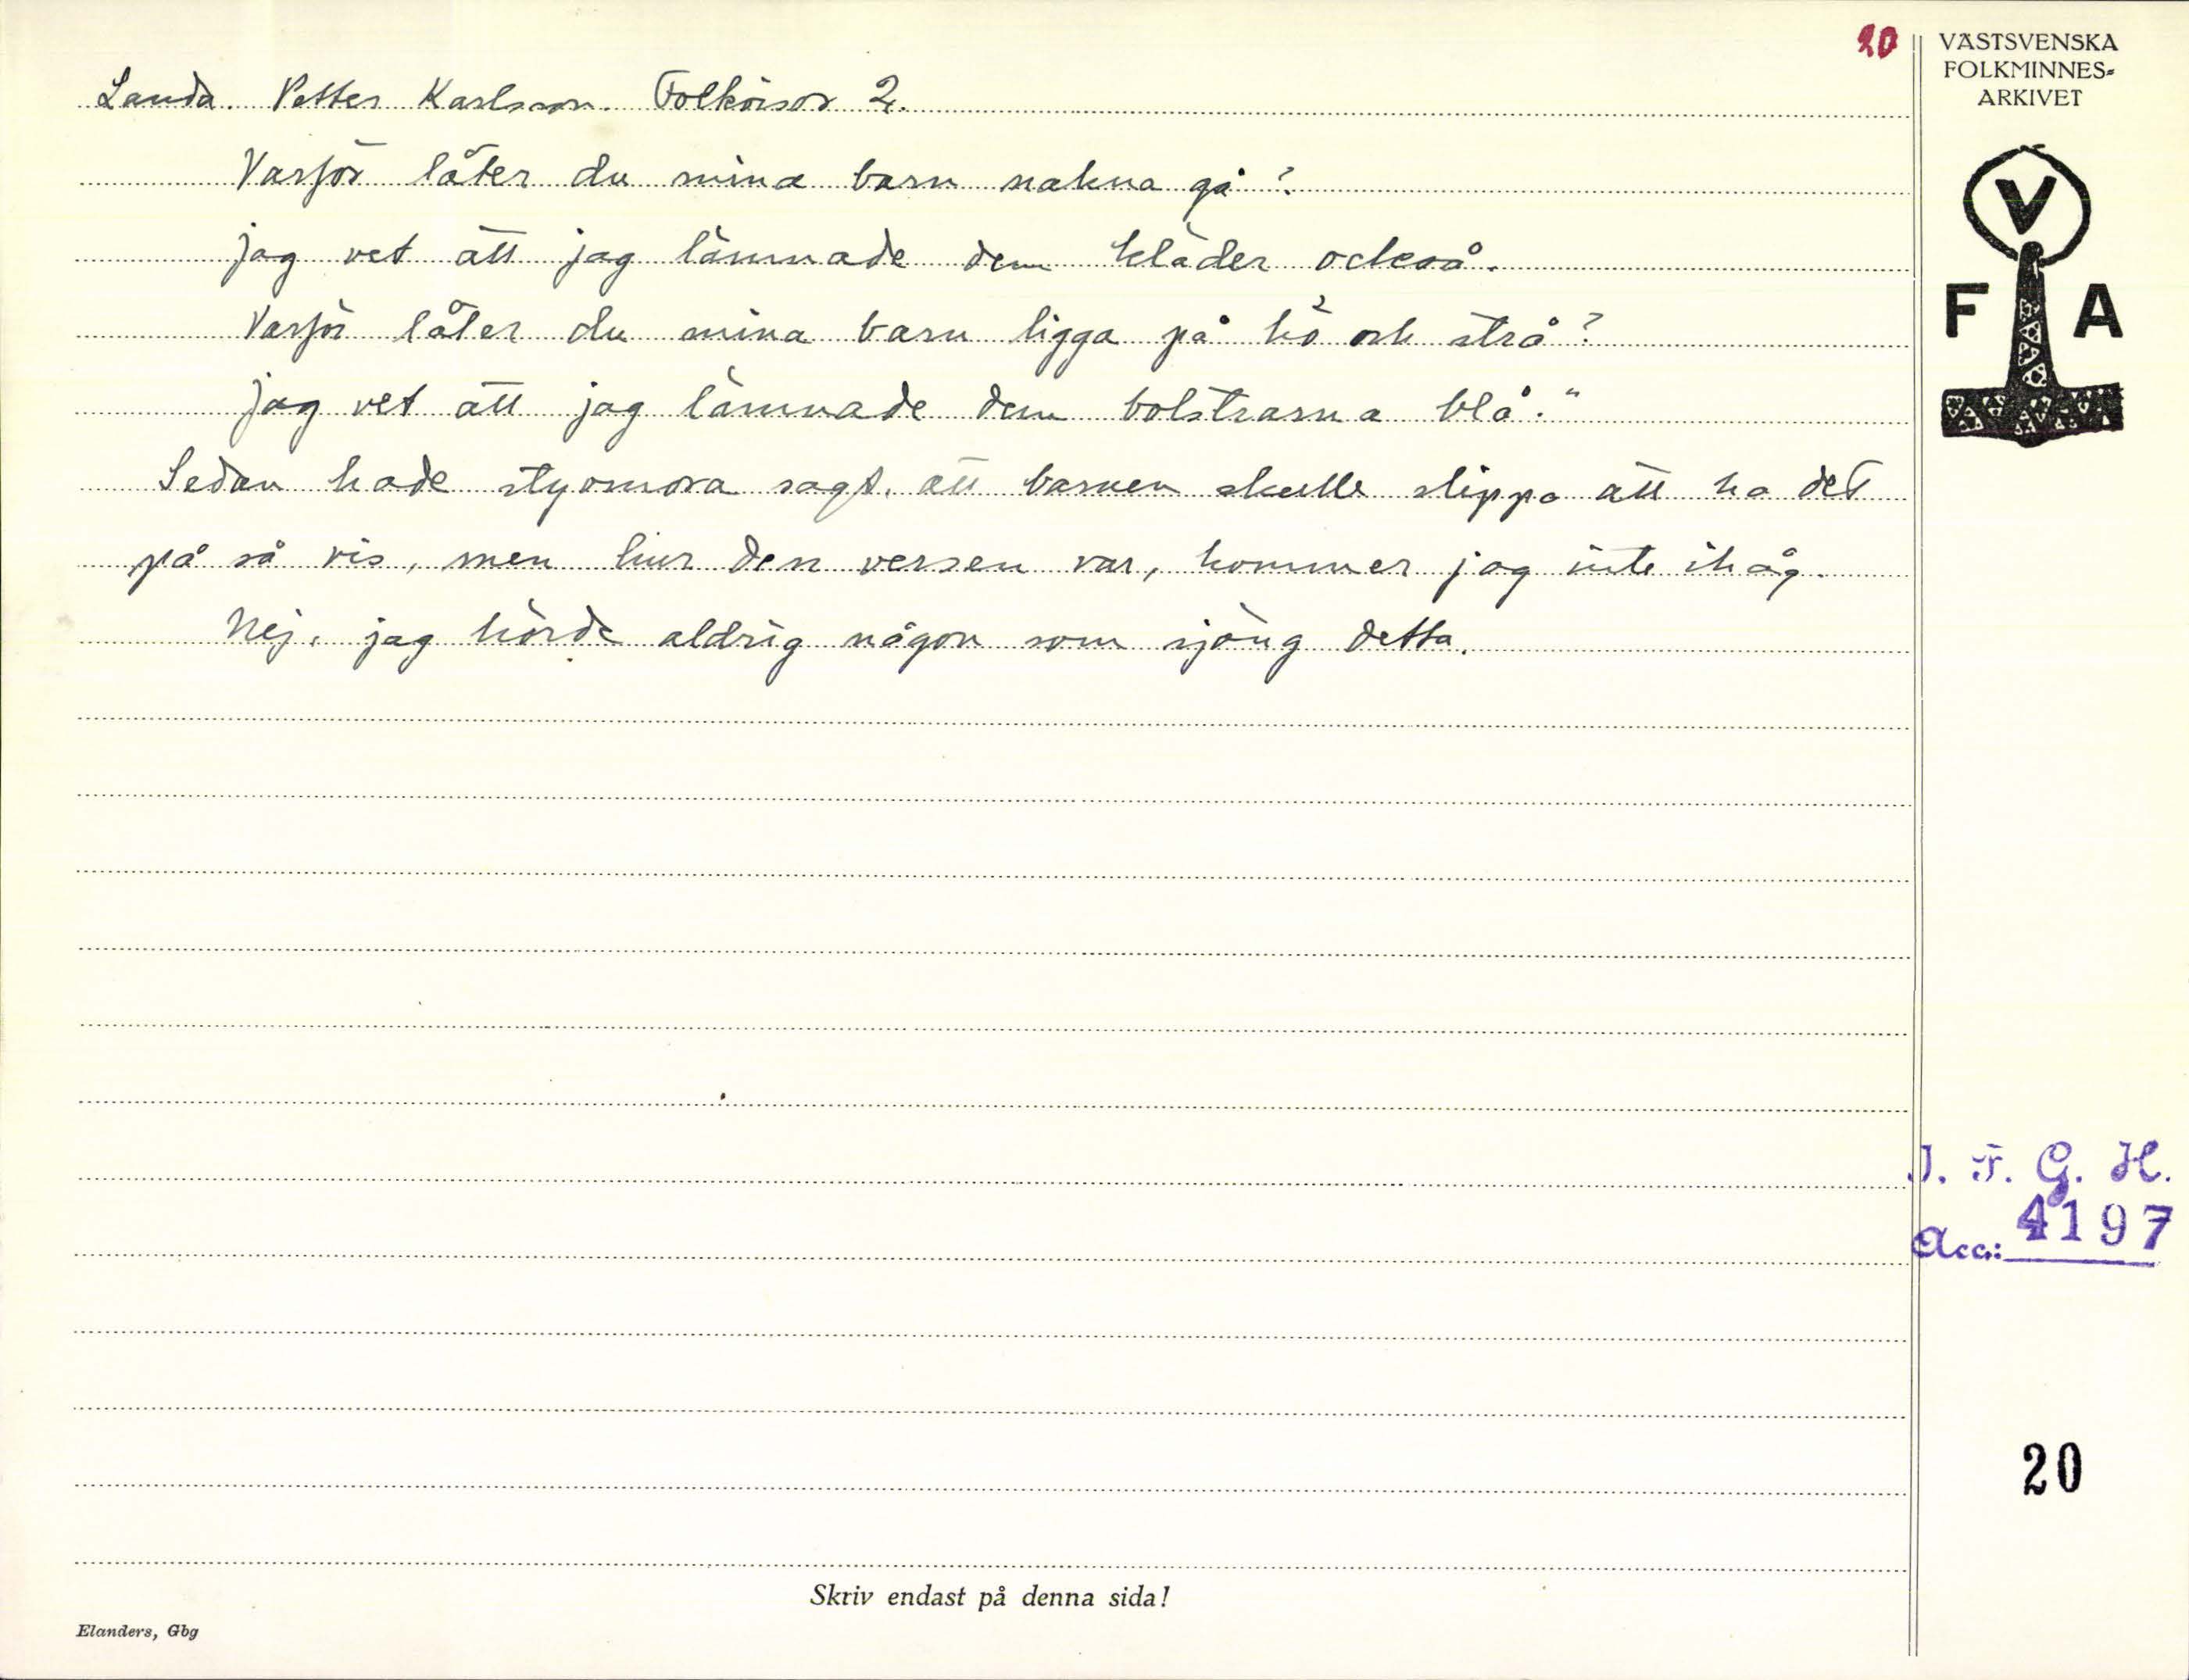 20
VÄSTSVENSKA
FOLKMINNES-
ARKIVET
Landa. Petter Karlsson. Folkvisor 2.
Varför låter du mina barn nakna gå?
jag vet att jag lämnade dem kläder också.
Varför låter du mina barn ligga på hö och strå?
jag vet att jag lämnade dem bolstrarna blå."
Sedan hade styvmora sagt, att barnen skulle slippa att ha det
på så vis, men hur den versen var, kommer jag inte ihåg.
Nej, jag hörde aldrig någon som sjöng detta.
V
F A
I. F. G. H.
Acc.: 4197
20
Skriv endast på denna sida!
Elanders, Gbg